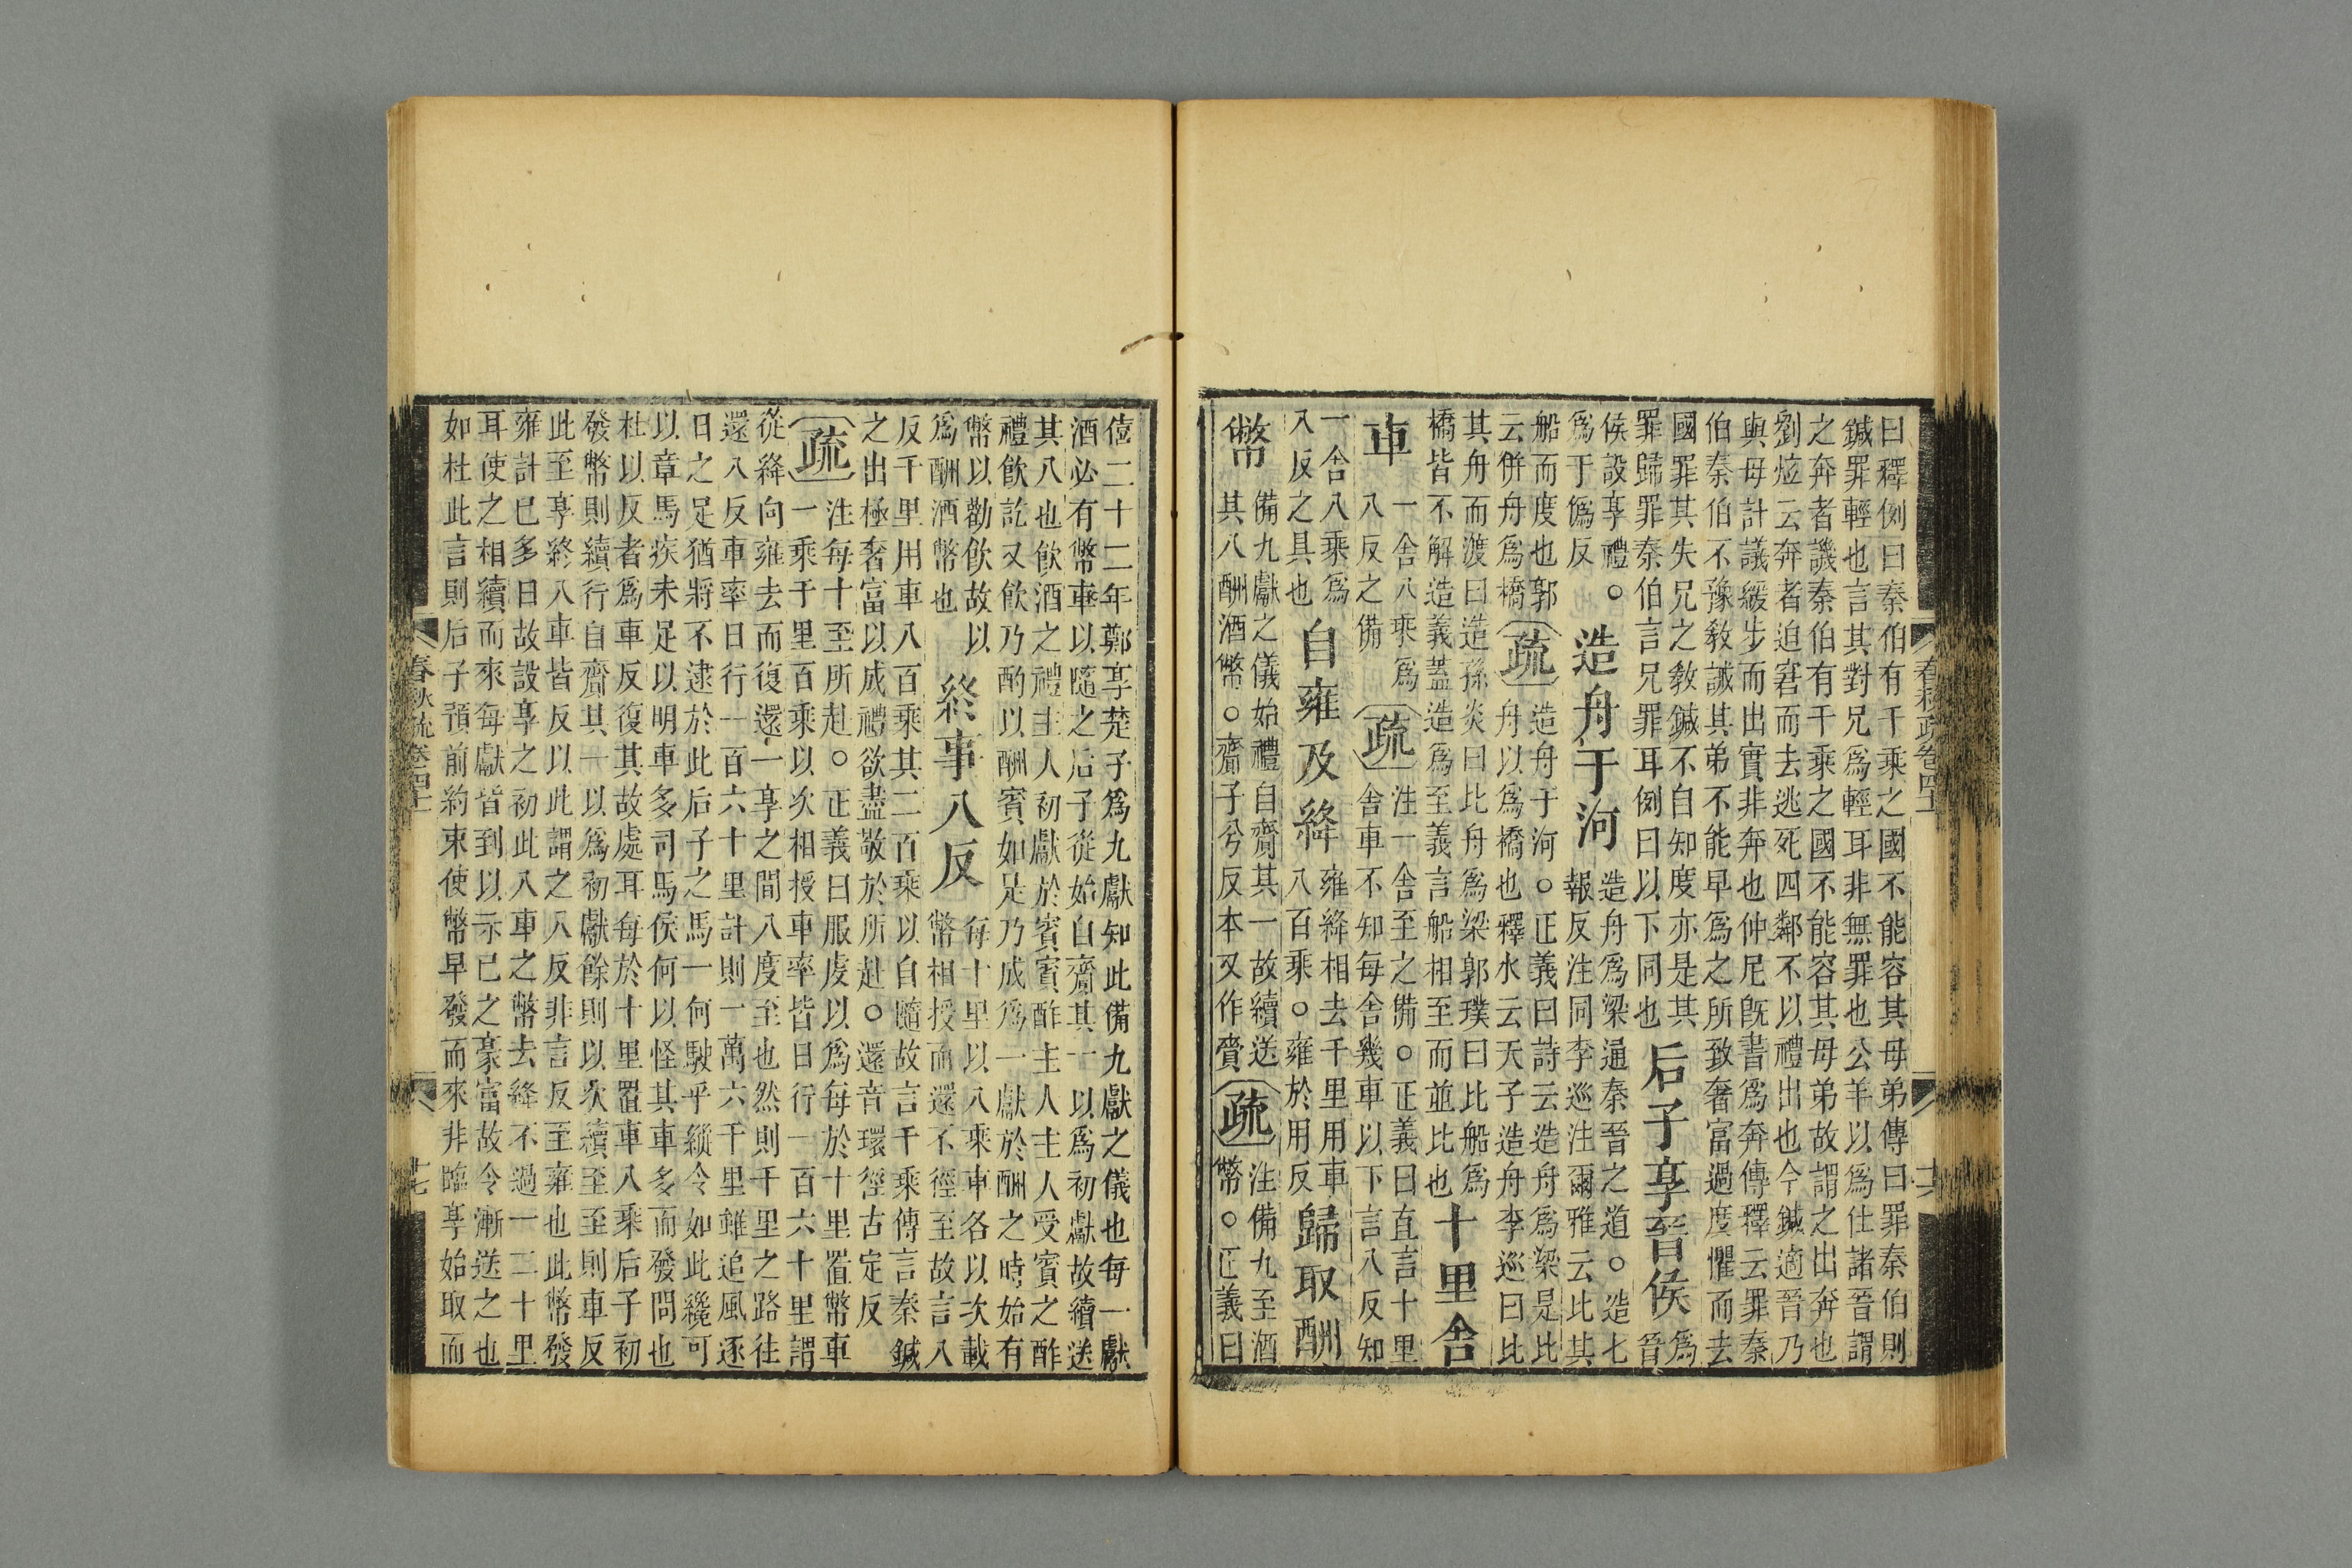 曰釋例曰秦伯有千乘之國不能容其母弟傳曰罪秦伯則
鍼罪輕也言其對兄爲輕耳非無罪也公羊以爲仕諸晉謂
之奔者譏秦伯有千乘之國不能容其母弟故謂之出奔也
劉炫云奔者迫窘而去逃死四鄰不以禮出也今鍼適晉乃
與母計議緩步而出實非奔也仲尼旣書爲奔傳釋云罪秦
伯秦伯不豫敎誡其弟不能早爲之所致奢富過度懼而去
國罪其失兄之敎鍼不自知度亦是其
罪歸罪秦伯言兄罪耳例曰以下同也
后子享晉侯
爲
晉
侯設享禮。
爲于僞反
造舟于河
造舟爲梁通秦晉之道。造七
報反注同李巡注爾雅云比其
船而度也郭
云併舟爲橋
疏
造舟于河。正義曰詩云造舟爲梁是比
舟以爲橋也釋水云天子造舟李巡曰比
其舟而渡曰造孫炎曰比舟爲梁郭璞曰比船爲
橋皆不解造義蓋造爲至義言船相至而並比也
十里舍
車
一舍八乘爲
八反之備
疏
注一舍至之備。正義曰直言十里
舍車不知每舍幾車以下言八反知
一舍八乘爲
八反之具也
自雍及絳
雍絳相去千里用車
八百乘。雍於用反
歸取酬
幣
備九獻之儀始禮自齎其一故續送
其八酬酒幣。齎子兮反本又作賫
疏
注備九至酒
幣。正義曰
僖二十二年鄭享楚子爲九獻知此備九獻之儀也每一獻
酒必有幣車以隨之后子從始自齎其一以爲初獻故續送
其八也飮酒之禮主人初獻於賓賓酢主人主人受賓之酢
禮飮訖又飮乃酌以酬賓如是乃成爲一獻於酬之時始有
幣以勸飮故以
爲酬酒幣也
終事八反
每十里以八乘車各以次載
幣相授而還不徑至故言八
反千里用車八百乘其二百乘以自隨故言千乘傳言秦鍼
之出極奢富以成禮欲盡敬於所赴。還音環徑古定反
疏
注每十至所赴。正義曰服虔以爲每於十里置幣車
一乘千里百乘以次相授車率皆日行一百六十里謂
從絳向雍去而復還一享之間八度至也然則千里之路往
還八反車率日行一百六十里計則一萬六千里雖追風逐
日之足猶將不逮於此后子之馬一何駛乎縱令如此纔可
以章馬疾未足以明車多司馬侯何以怪其車多而發問也
杜以反者爲車反復其故處耳每於十里置車八乘后子初
發幣則續行自齎其一以爲初獻餘則以次續至至則車反
此至享終八車皆反以此謂之八反非言反至雍也此幣發
雍計已多日故設享之初此八車之幣去絳不過一二十里
耳使之相續而來每獻皆到以示己之豪富故令漸送之也
如杜此言則后子預前約束使幣早發而來非臨享始取而
春秋疏卷四十一
十七